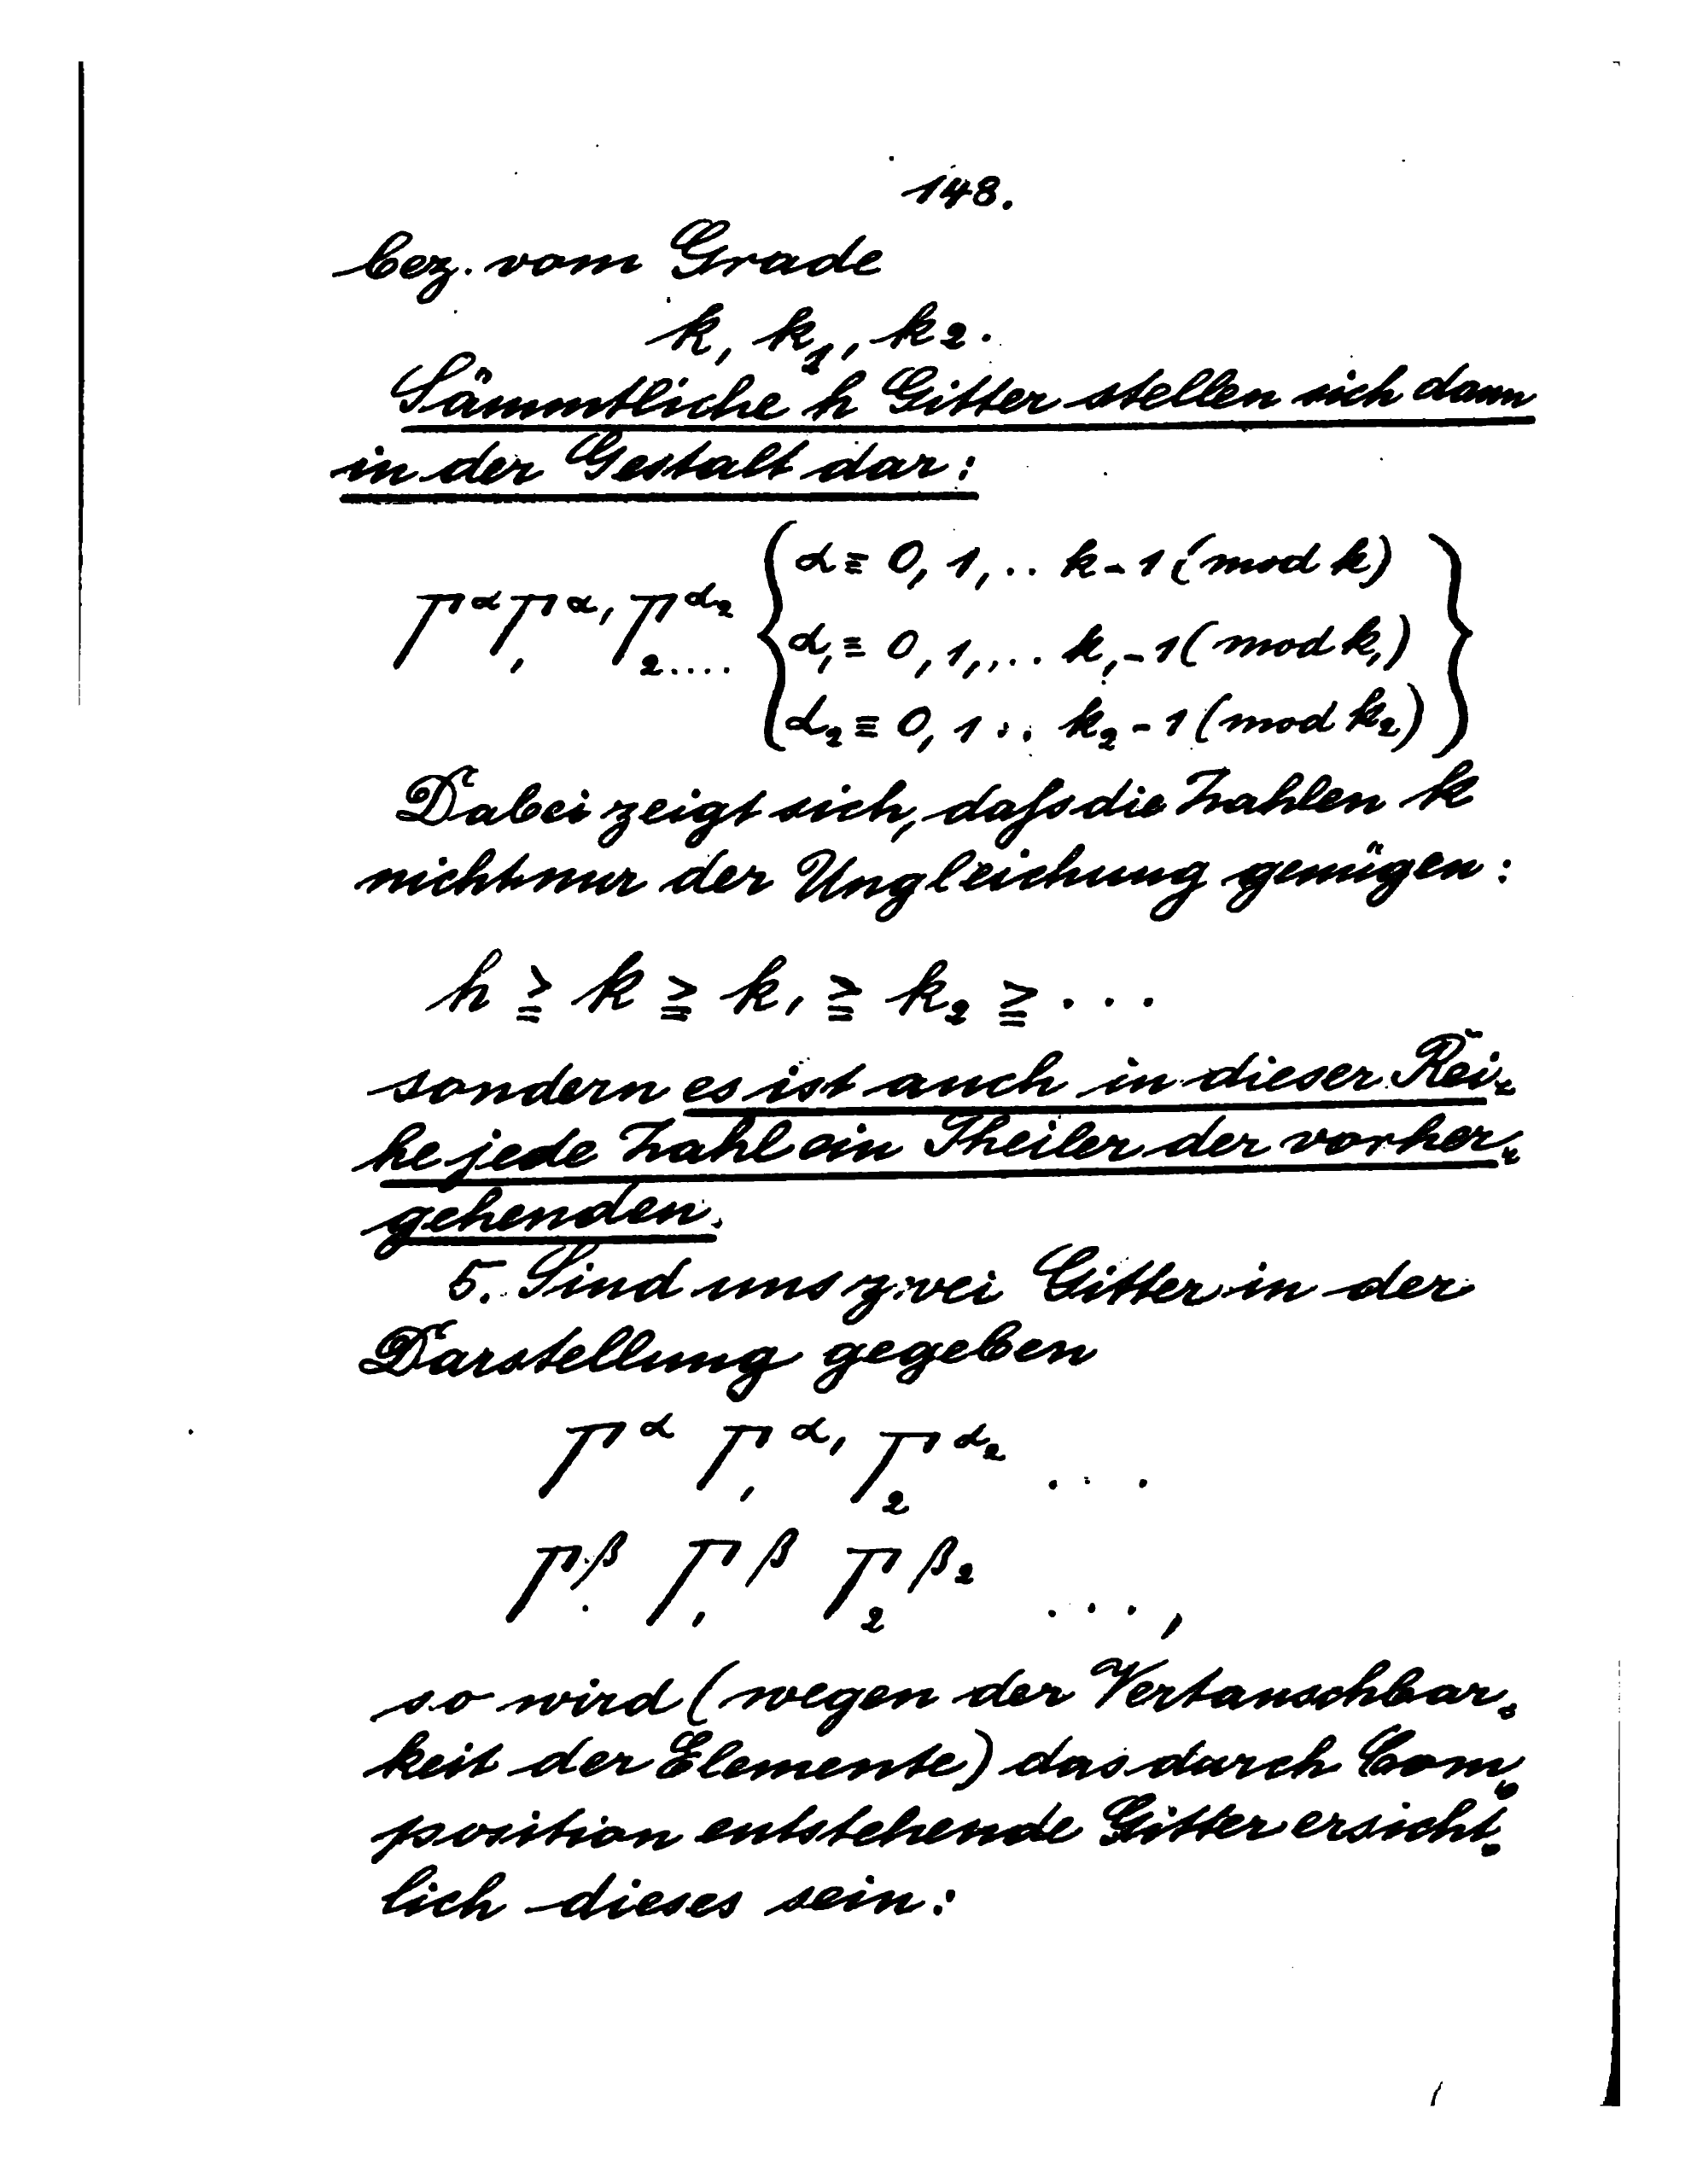 148.
bez. vom Grade
k, k₁, k₂.
Sämmtliche h Gitter stellen sich dann
in der Gestalt dar:
Γ^α Γ₁^α₁ Γ₂^α₂ .... { α ≡ 0, 1, .. k - 1 (mod k)
α₁ ≡ 0, 1, ... k₁ - 1 (mod k₁)
α₂ ≡ 0, 1 .. k₂ - 1 (mod k₂) }
Dabei zeigt sich, dafs die Zahlen k
nicht nur der Ungleichung genügen:
h ≧ k ≧ k₁ ≧ k₂ ≧ ...
sondern es ist auch in dieser Rei-
he jede Zahl ein Theiler der vorher-
gehenden.
5. Sind uns zwei Gitter in der
Darstellung gegeben
Γ^α Γ₁^α₁ Γ₂^α₂ ...
Γ^β Γ₁^β Γ₂^β₂ ...,
so wird (wegen der Vertauschbar-
keit der Elemente) das durch Com-
position entstehende Gitter ersicht-
lich dieses sein: